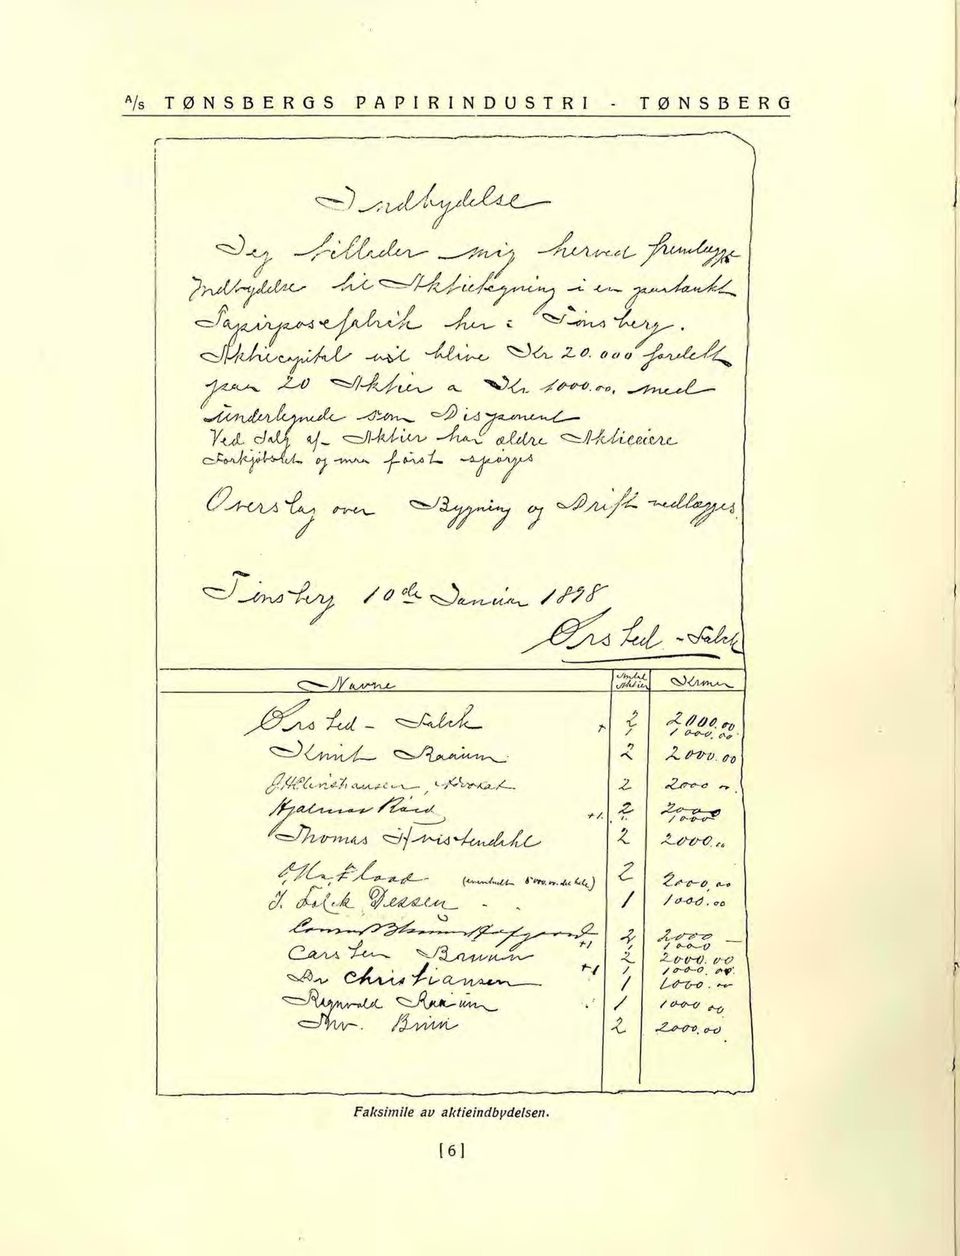 A/s TØNSBERGS PAPIRINDUSTRI - TØNSBERG
Indbydelse
Jeg tillader mig herved fremlægge
Indbydelse til Aktietegning i en paatænkt
Papirposefabrik her i Tønsberg.
Aktiecapital vil blive Kr. 20.000 fordelt
paa 20 Aktier a Kr. 1000.00, med
undertegnede som Disponent
Ved Salg af Aktier har ældre Aktieeiere
Forkjøbsret og maa først spørges
Overslag over Bygning og Drift vedlægges.
Tønsberg 10de Januar 1898
Ørsted-Falck
Navne Antal Aktier Kroner
Ørsted-Falck + 2 2000.00
1 1000.00
Knut Raaum 2 2000.00
2 2000
Hjalmar +1. 2 2000
1. 1000
Thomas Hvistendahl 2 2000.
Flood 2 2000.00
J. Falck - - 1 1000.00
+1 2 2000
1 1000
Carsten Bruun 2 2000.00
+1 1 1000.00
Christiansen 1 1000.
Ragnvald Raaum 1 1000
Bruun 2 2000.00
Faksimile av aktieindbydelsen.
[6]